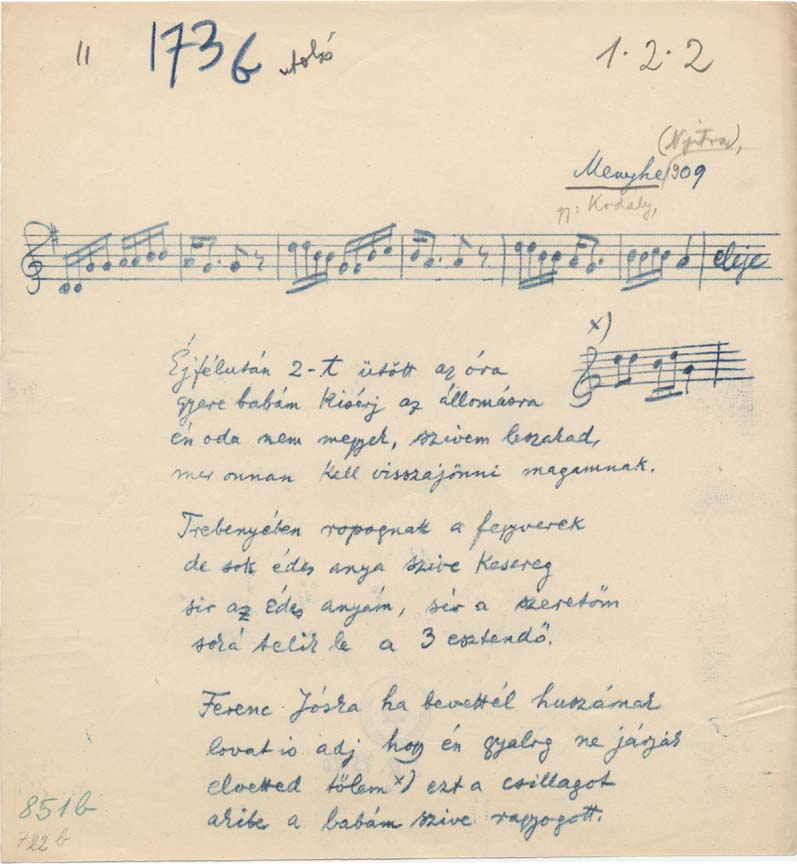 11 173 b utolsó 1·2·2
(Nyitra),
Menyhe, 909
gy: Kodály,
eleje
x)
Éjfélután 2-t ütött az óra
gyere babám kisérj az állomásra
én oda nem megyek, szivem leszakad,
mer onnan kell visszajönni magamnak.
Trebenyében ropognak a fegyverek
de sok édes anya szive kesereg
sir az édes anyám, sir a szeretőm
soká telik le a 3 esztendő.
Ferenc Jóska ha bevettél huszárnak
lovat is adj hogy én gyalog ne járjak
elvetted tőlem x) ezt a csillagot
akibe a babám szive ragyogott.
851b
722 b